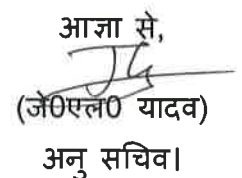 आज्ञा से,
(जे0एल0 यादव)
अनु सचिव।